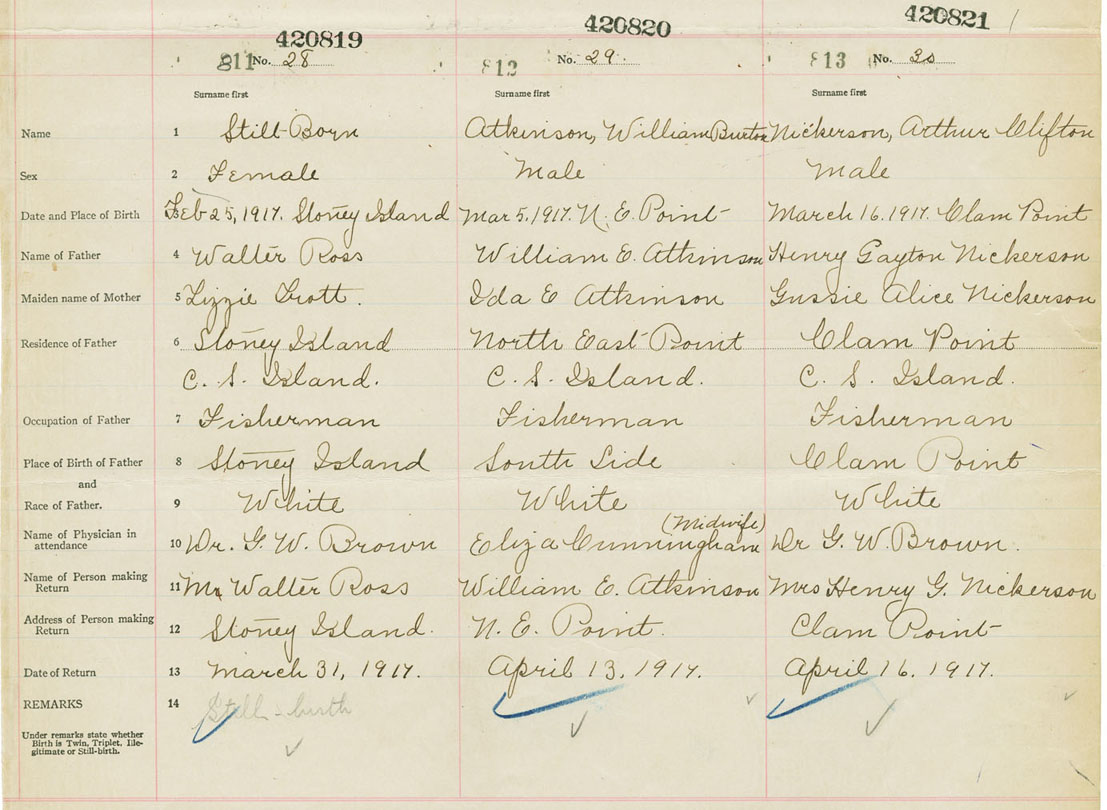 420819 420820 420821
811 No. 28 812 No. 29. 813 No. 30
Surname first Surname first Surname first
Name 1 Still-Born Atkinson, William Burton Nickerson, Arthur Clifton
Sex 2 Female Male Male
Date and Place of Birth 3 Feb 25, 1917. Stoney Island Mar 5. 1917. N. E. Point March 16. 1917. Clam Point
Name of Father 4 Walter Ross William E. Atkinson Henry Gayton Nickerson
Maiden name of Mother 5 Lizzie Crott. Ida E Atkinson Gussie Alice Nickerson
Residence of Father 6 Stoney Island North East Point Clam Point
C. S. Island. C. S. Island. C. S. Island.
Occupation of Father 7 Fisherman Fisherman Fisherman
Place of Birth of Father 8 Stoney Island South Side Clam Point
and
Race of Father. 9 White White White
(Midwife)
Name of Physician in
attendance 10 Dr. G. W. Brown Eliza Cunningham Dr G. W. Brown.
Name of Person making
Return 11 Walter Ross William E. Atkinson Mrs Henry G. Nickerson
Address of Person making
Return 12 Stoney Island. N. E. Point. Clam Point
Date of Return 13 March 31, 1917. April 13, 1917. April 16. 1917.
REMARKS 14 Still-birth
Under remarks state whether
Birth is Twin, Triplet, Ille-
gitimate or Still-birth.